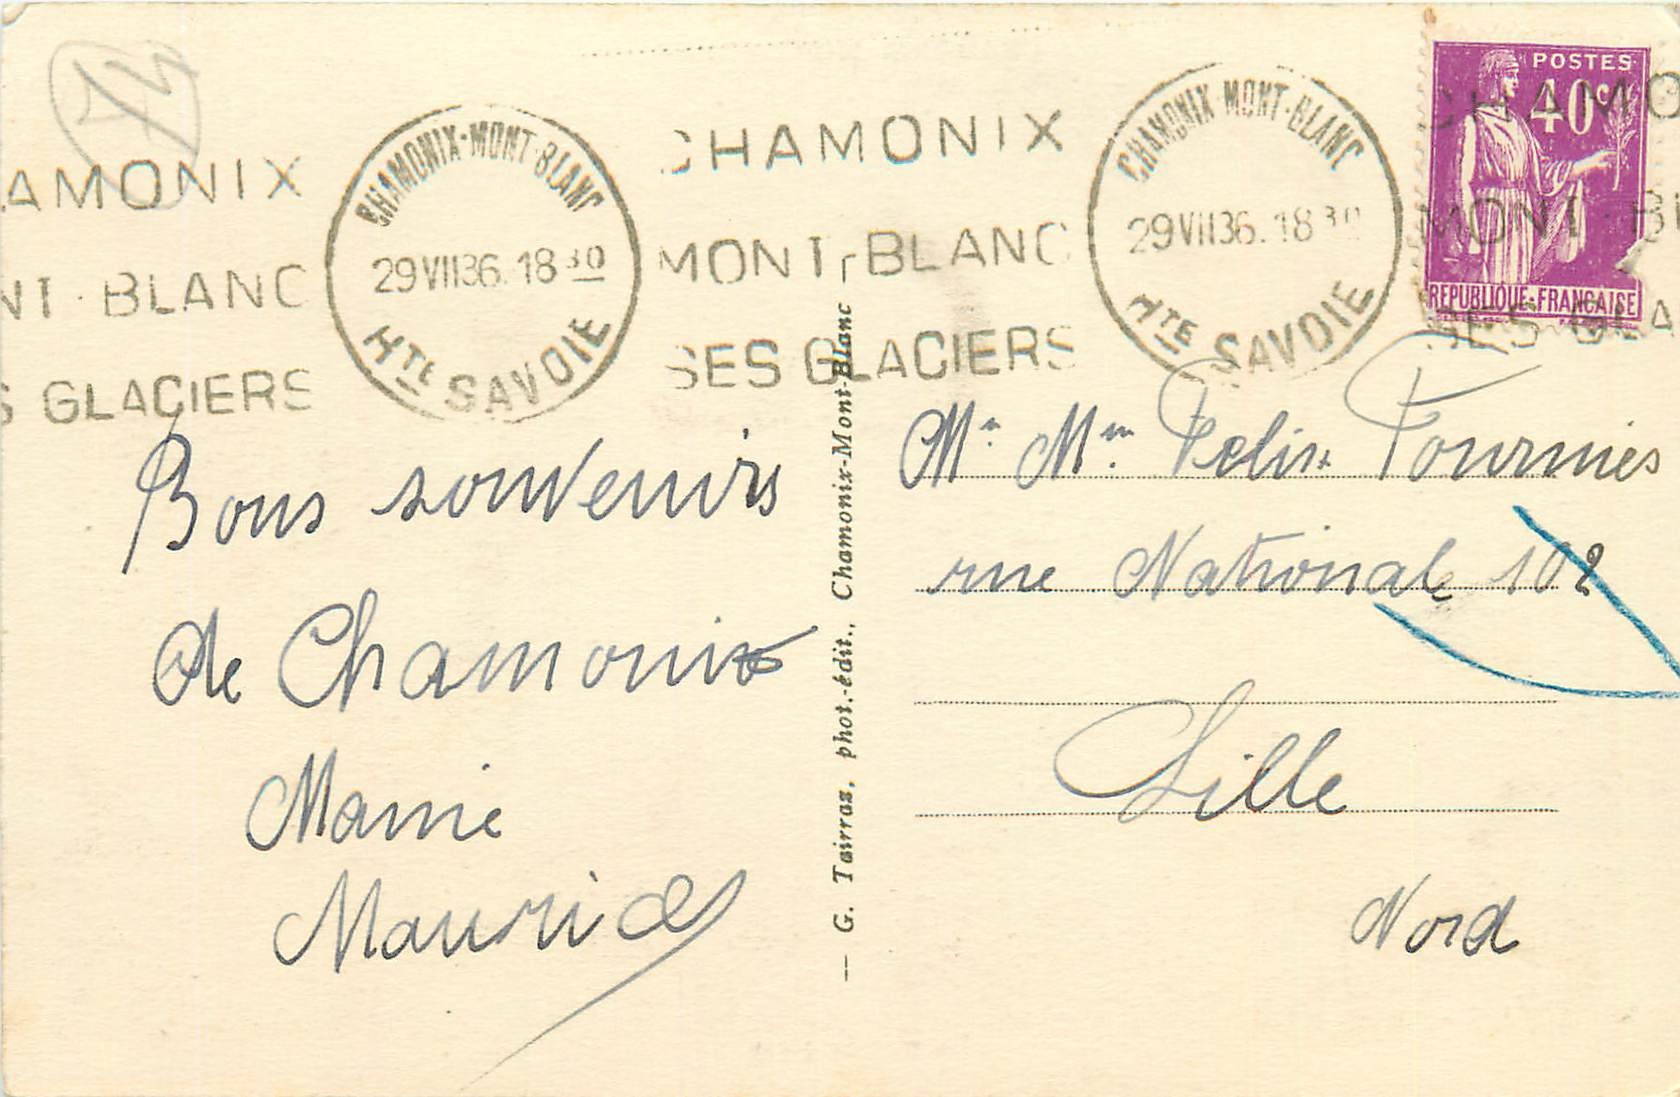 AMONIX
NT-BLANC
S GLACIERS
CHAMONIX-MONT-BLANC
29 VII 36. 18 30
HTE SAVOIE
CHAMONIX
MONT-BLANC
SES GLACIERS
CHAMONIX MONT-BLANC
29 VII 36. 18 30
HTE SAVOIE
CHAMO
MONT-BL
SES GLA
POSTES
40c
REPUBLIQUE-FRANCAISE
Bons souvenirs
de Chamonix
Mamie
Maurice
— G. Tairraz, phot.-édit., Chamonix-Mont-Blanc
Mr Mme Felix Fournier
rue National 102
Lille
Nord